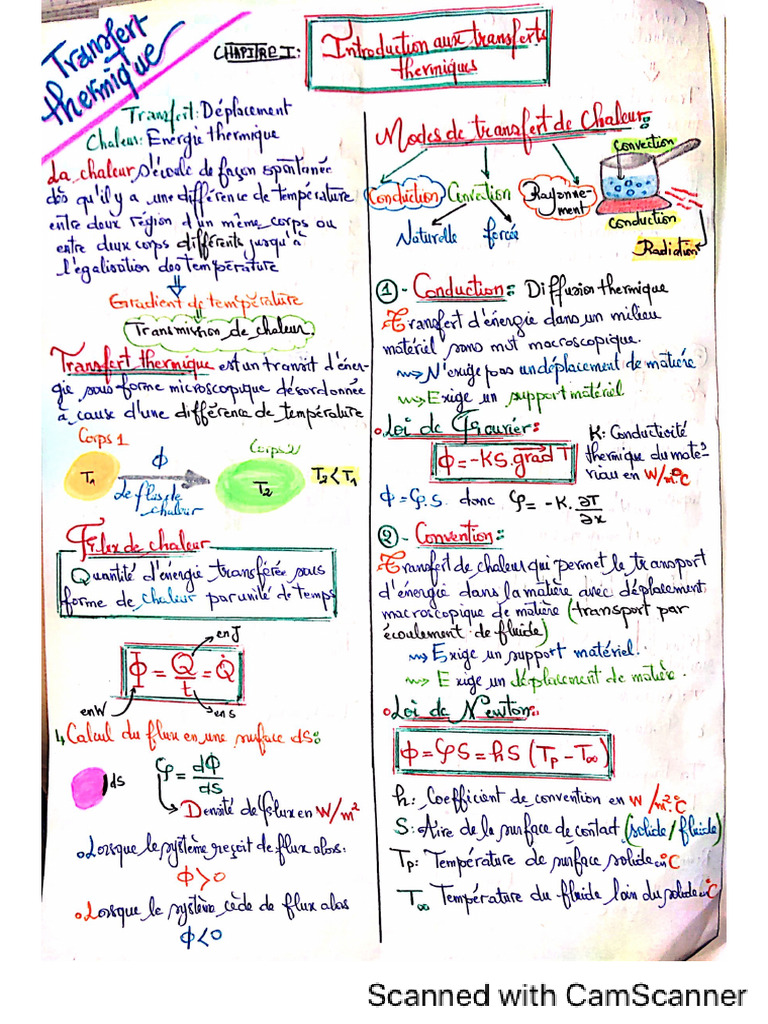 Transfert
thermique
CHAPITRE I:
Introduction aux transferts
thermiques
Transfert: Déplacement
Chaleur: Energie thermique
La chaleur s'écoule de façon spontanée
dès qu'il y a une différence de température
entre deux région d'un même corps ou
entre deux corps différents jusqu'à
l'égalisation des température
Gradient de température
Transmission de chaleur
Transfert thermique est un transit d'éner-
gie sous forme microscopique désordonnée
à cause d'une différence de température
Corps 1
Φ
Corps 2
T1
T2
T2 < T1
le flux de
chaleur
Flux de chaleur
Quantité d'énergie transférée sous
forme de chaleur par unité de temps
en J
Φ = Q/t = Q̇
en W
en s
Calcul du flux en une surface ds:
ds
φ = dΦ/ds
Densité de flux en W/m²
Lorsque le système reçoit de flux alors:
Φ>0
Lorsque le système cède de flux alos
Φ<0
Modes de transfert de Chaleur:
Conduction
Convection
Rayonne-
ment
Naturelle
forcée
Convection
Conduction
Radiation
① - Conduction: Diffusion thermique
Transfert d'énergie dans un milieu
matériel sans mvt macroscopique.
N'exige pas un déplacement de matière
Exige un support matériel
Loi de Fourier:
Φ = -KS.grad T
K: Conductivité
thermique du maté-
riau en W/m.°C
Φ = φ.S donc φ = -K. ∂T/∂x
② - Convention:
Transfert de chaleur qui permet le transport
d'énergie dans la matière avec déplacement
macroscopique de matière (transport par
écoulement de fluide)
Exige un support matériel.
Exige un déplacement de matière.
Loi de Newton:
Φ = φS = hS (Tp - T∞)
h: Coefficient de convention en W/m².°C
S: Aire de la surface de contact (solide/fluide)
Tp: Température de surface solide en °C
T∞ Température du fluide loin du solide en °C
Scanned with CamScanner